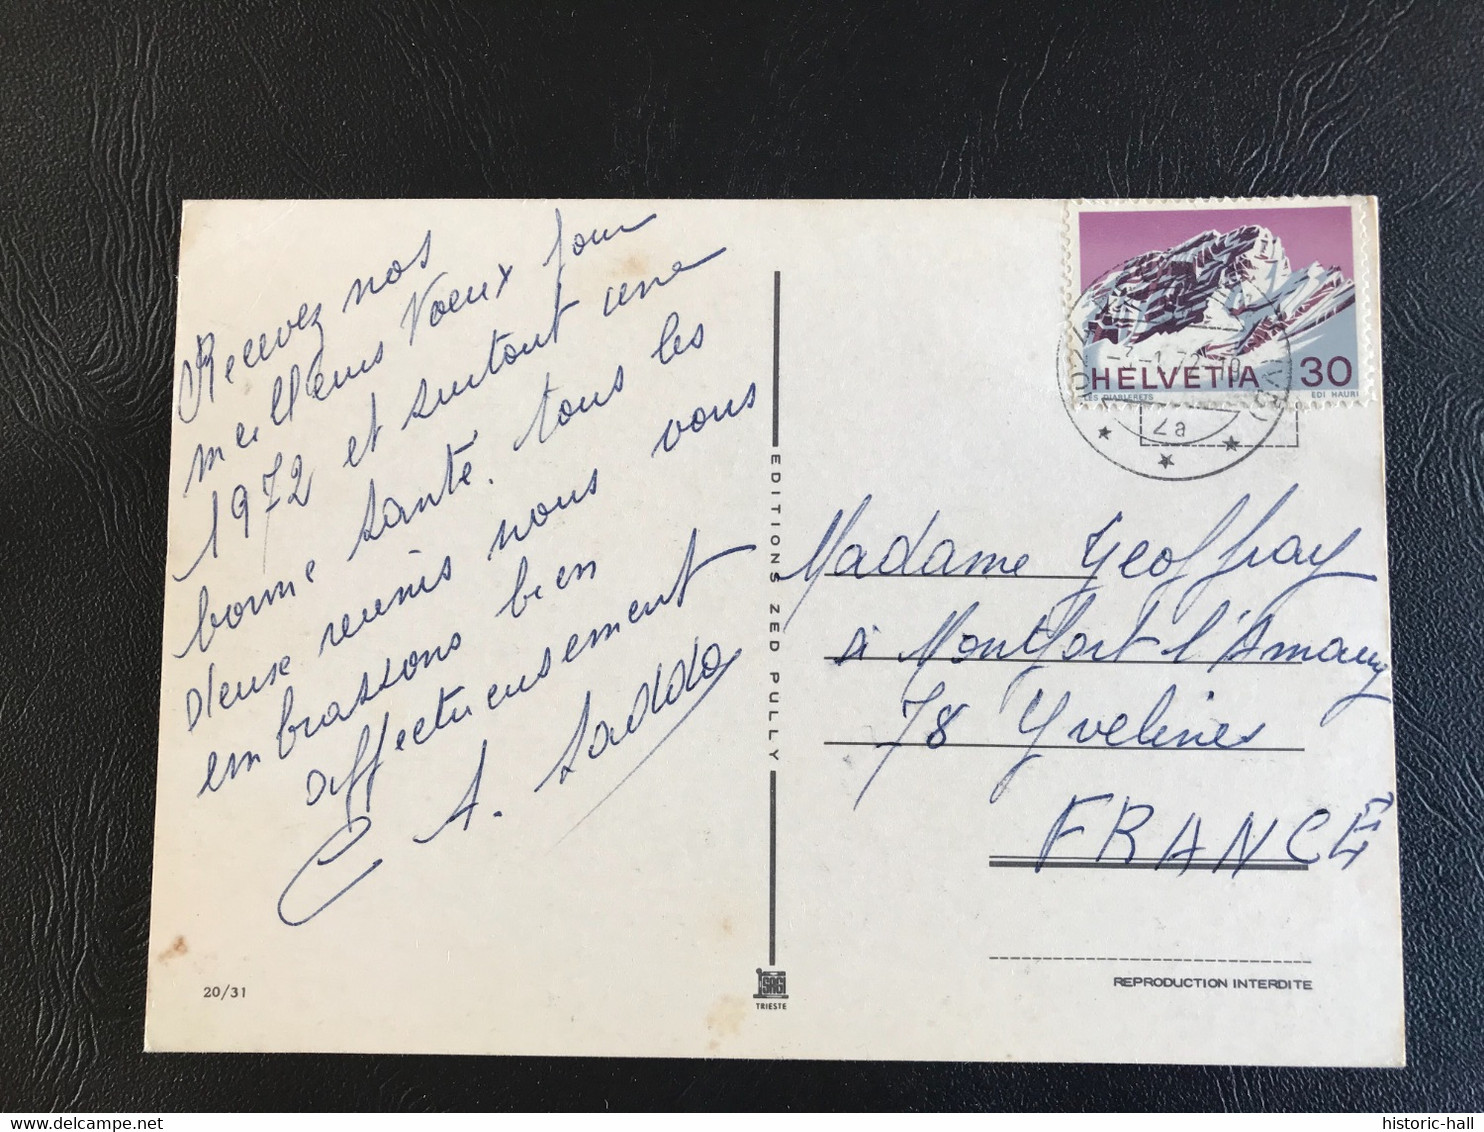 Recevez nos
meilleurs Voeux pour
1972 et surtout une
bonne santé. tous les
deux reunis nous vous
embrassons bien
affectueusement
A. Saddo
EDITIONS ZED PULLY
SAGI
TRIESTE
20/31
HELVETIA 30
LES DIABLERETS EDI HAURI
-1.72-10
2a
Madame Geoffray
à Montfort l'Amaury
78 Yvelines
FRANCE
REPRODUCTION INTERDITE
historic-hall